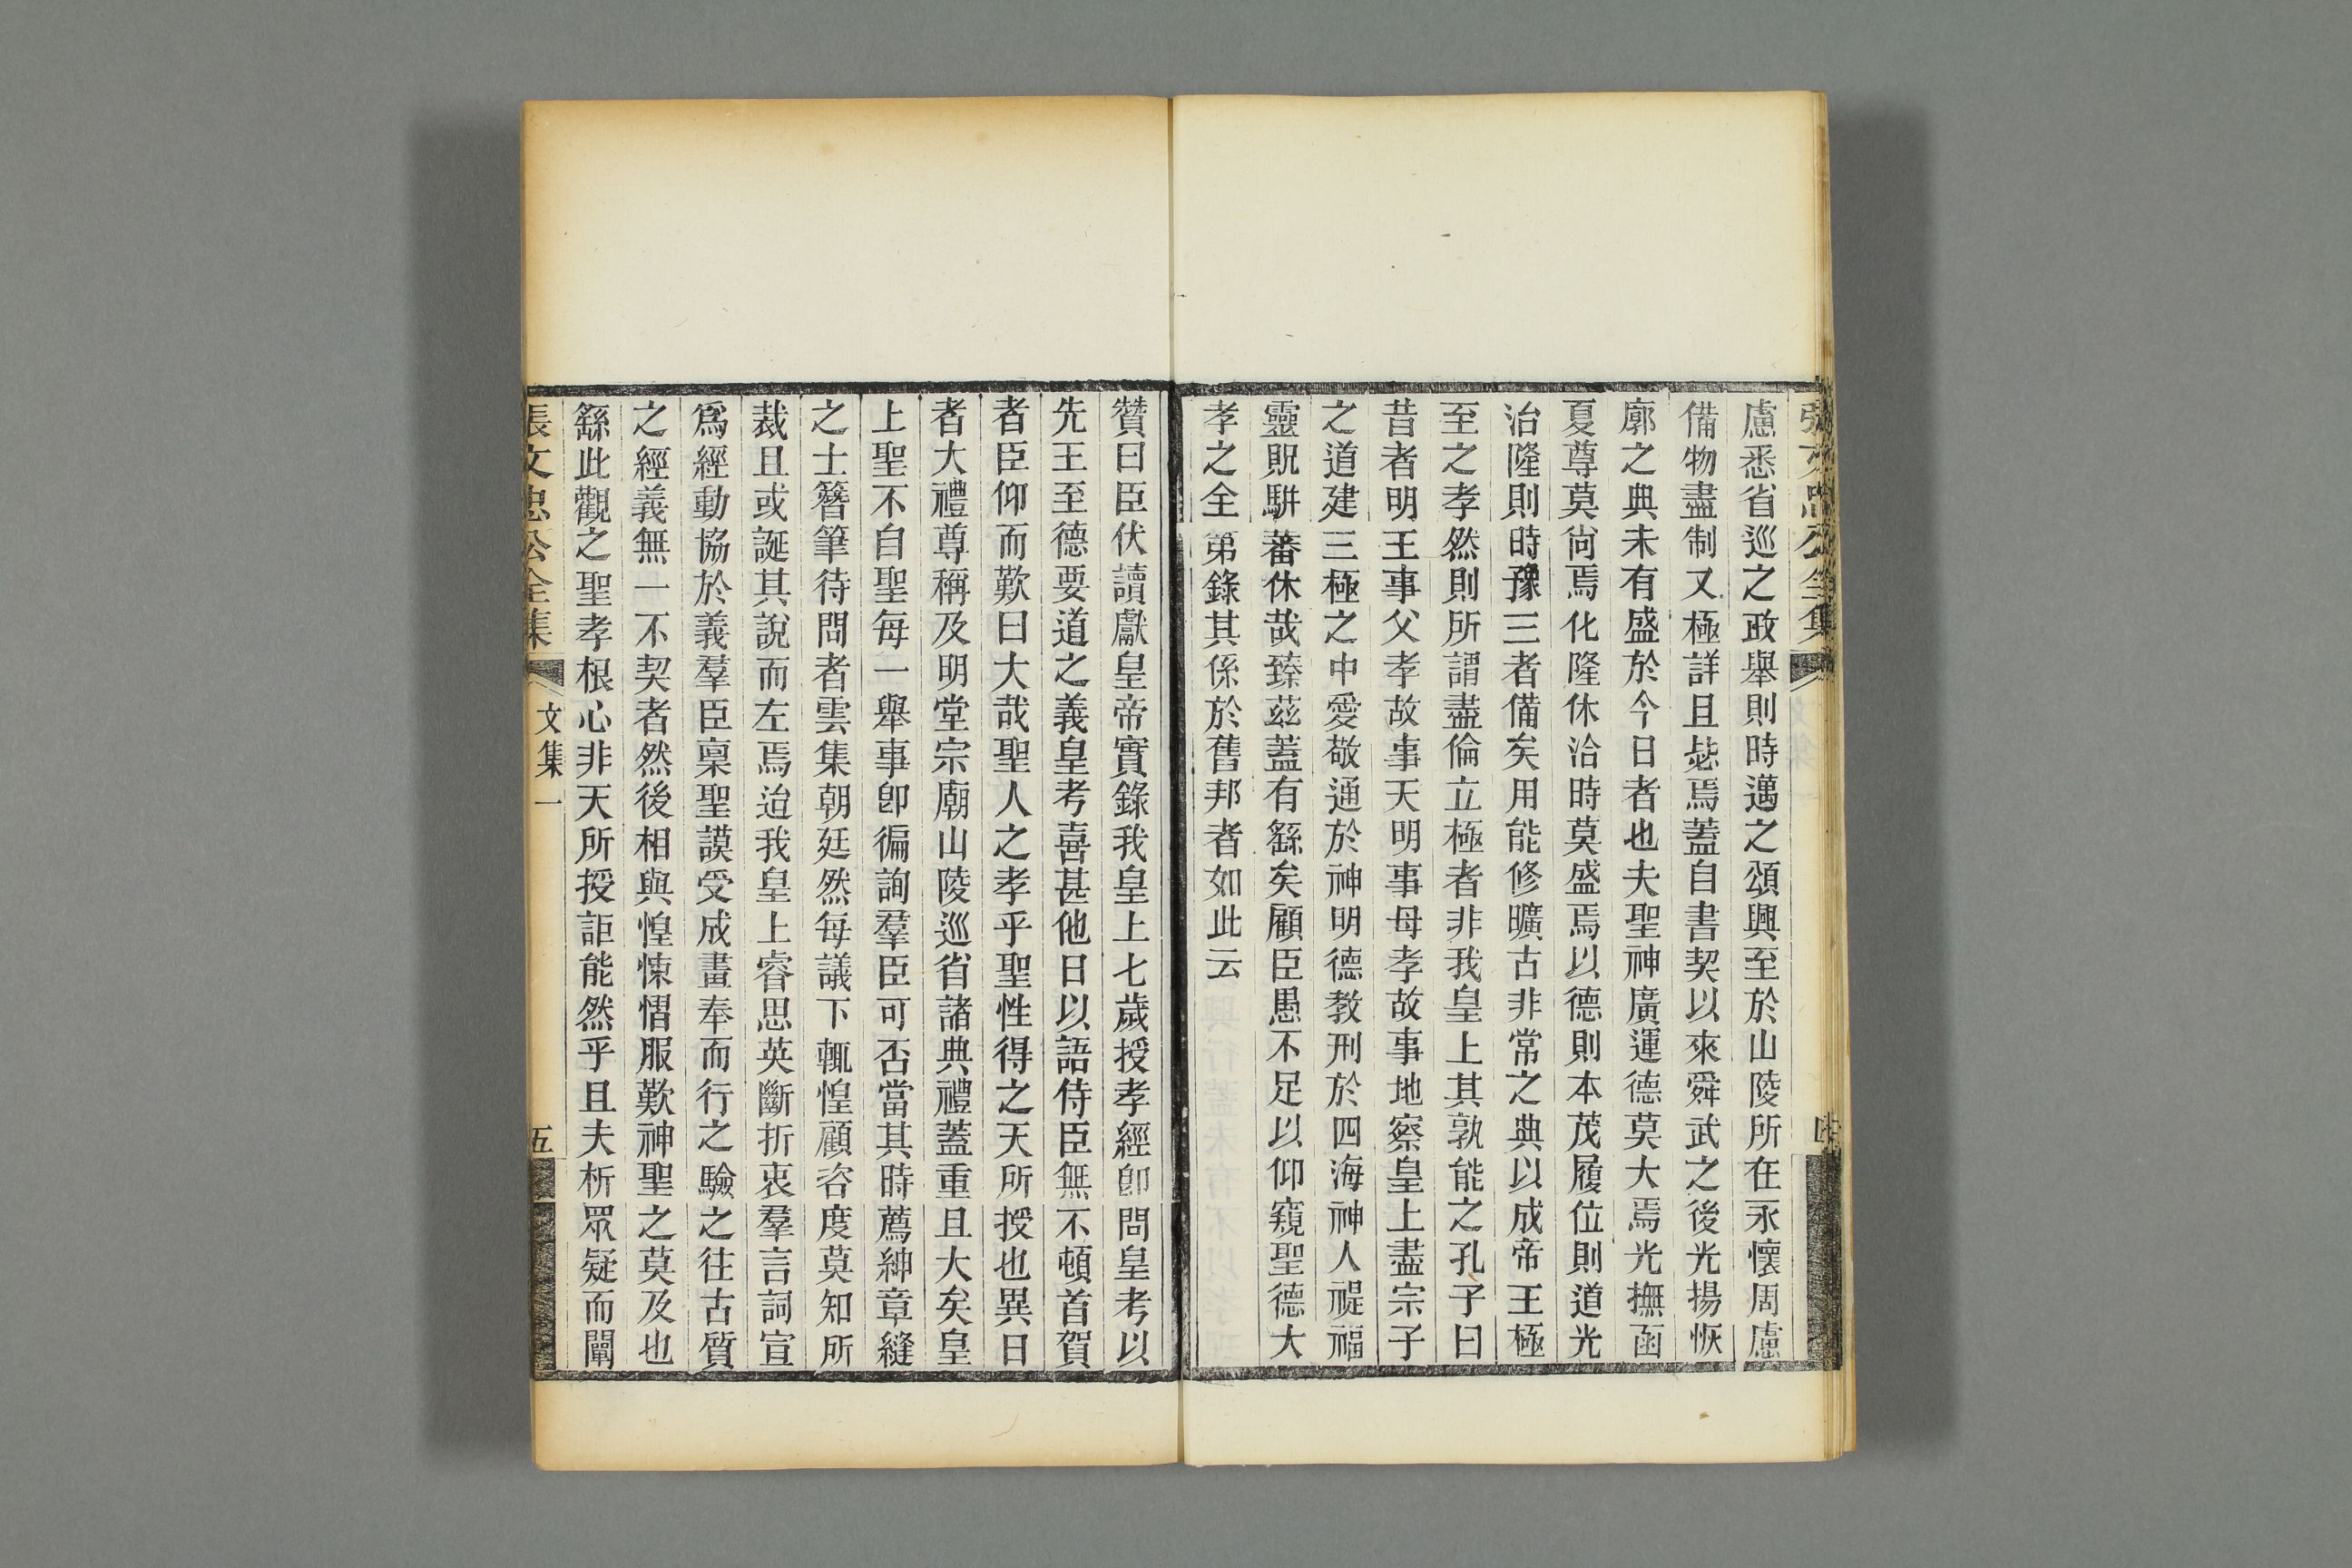 張文忠公全集
四
慮悉省巡之政舉則時邁之頌興至於山陵所在永懷周慮
備物盡制又極詳且毖焉蓋自書契以來舜武之後光揚恢
廓之典未有盛於今日者也夫聖神廣運德莫大焉光撫函
夏尊莫尚焉化隆休洽時莫盛焉以德則本茂履位則道光
治隆則時豫三者備矣用能修曠古非常之典以成帝王極
至之孝然則所謂盡倫立極者非我皇上其孰能之孔子曰
昔者明王事父孝故事天明事母孝故事地察皇上盡宗子
之道建三極之中愛敬通於神明德教刑於四海神人禔福
靈貺駢蕃休哉臻茲蓋有繇矣顧臣愚不足以仰窺聖德大
孝之全第錄其係於舊邦者如此云
贊曰臣伏讀獻皇帝實錄我皇上七歲授孝經卽問皇考以
先王至德要道之義皇考喜甚他日以語侍臣無不頓首賀
者臣仰而歎曰大哉聖人之孝乎聖性得之天所授也異日
者大禮尊稱及明堂宗廟山陵巡省諸典禮蓋重且大矣皇
上聖不自聖每一舉事卽徧詢羣臣可否當其時薦紳章縫
之士簪筆待問者雲集朝廷然每議下輒惶顧咨度莫知所
裁且或誕其說而左焉迨我皇上睿思英斷折衷羣言詞宣
爲經動協於義羣臣稟聖謨受成畫奉而行之驗之往古質
之經義無一不契者然後相與惶悚慴服歎神聖之莫及也
繇此觀之聖孝根心非天所授詎能然乎且夫析眾疑而闡
張文忠公全集
文集一
五